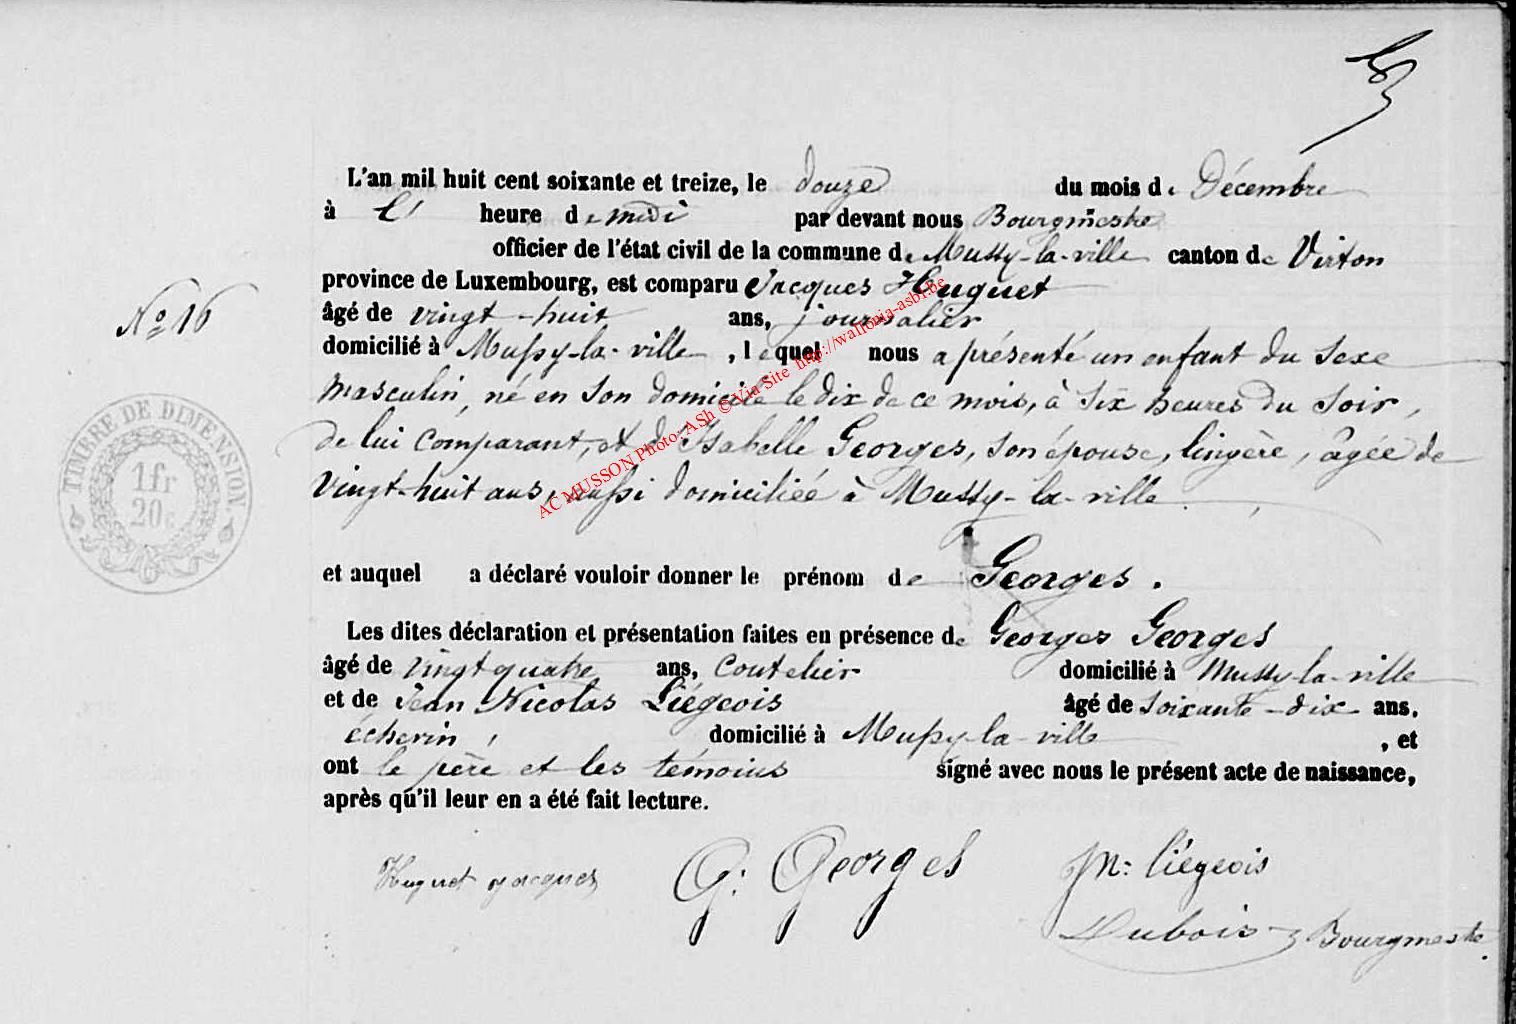 L'an mil huit cent soixante et treize, le douze du mois de Décembre
à l' heure de midi par devant nous Bourgmestre
officier de l'état civil de la commune de Mussy-la-ville canton de Virton
province de Luxembourg, est comparu Jacques Huguet
N° 16
âgé de vingt-huit ans, journalier
domicilié à Mussy-la-ville, lequel nous a présenté un enfant du sexe
masculin, né en son domicile le dix de ce mois, à six heures du soir,
de lui comparant, et d'Isabelle Georges, son épouse, lingère, âgée de
vingt-huit ans, aussi domiciliée à Mussy-la-ville
TIMBRE DE DIMENSION
1fr
20c
AC MUSSON Photo: ASh © Via Site http://wallonia-asbl.be
et auquel a déclaré vouloir donner le prénom de Georges.
Les dites déclaration et présentation faites en présence de Georges Georges
âgé de vingt quatre ans, coutelier domicilié à Mussy-la-ville
et de Jean Nicolas Liégeois âgé de soixante-dix ans,
échevin, domicilié à Mussy-la-ville, et
ont le père et les témoins signé avec nous le présent acte de naissance,
après qu'il leur en a été fait lecture.
Huguet Jacques G: Georges JN: Liégeois
Dubois Bourgmestre